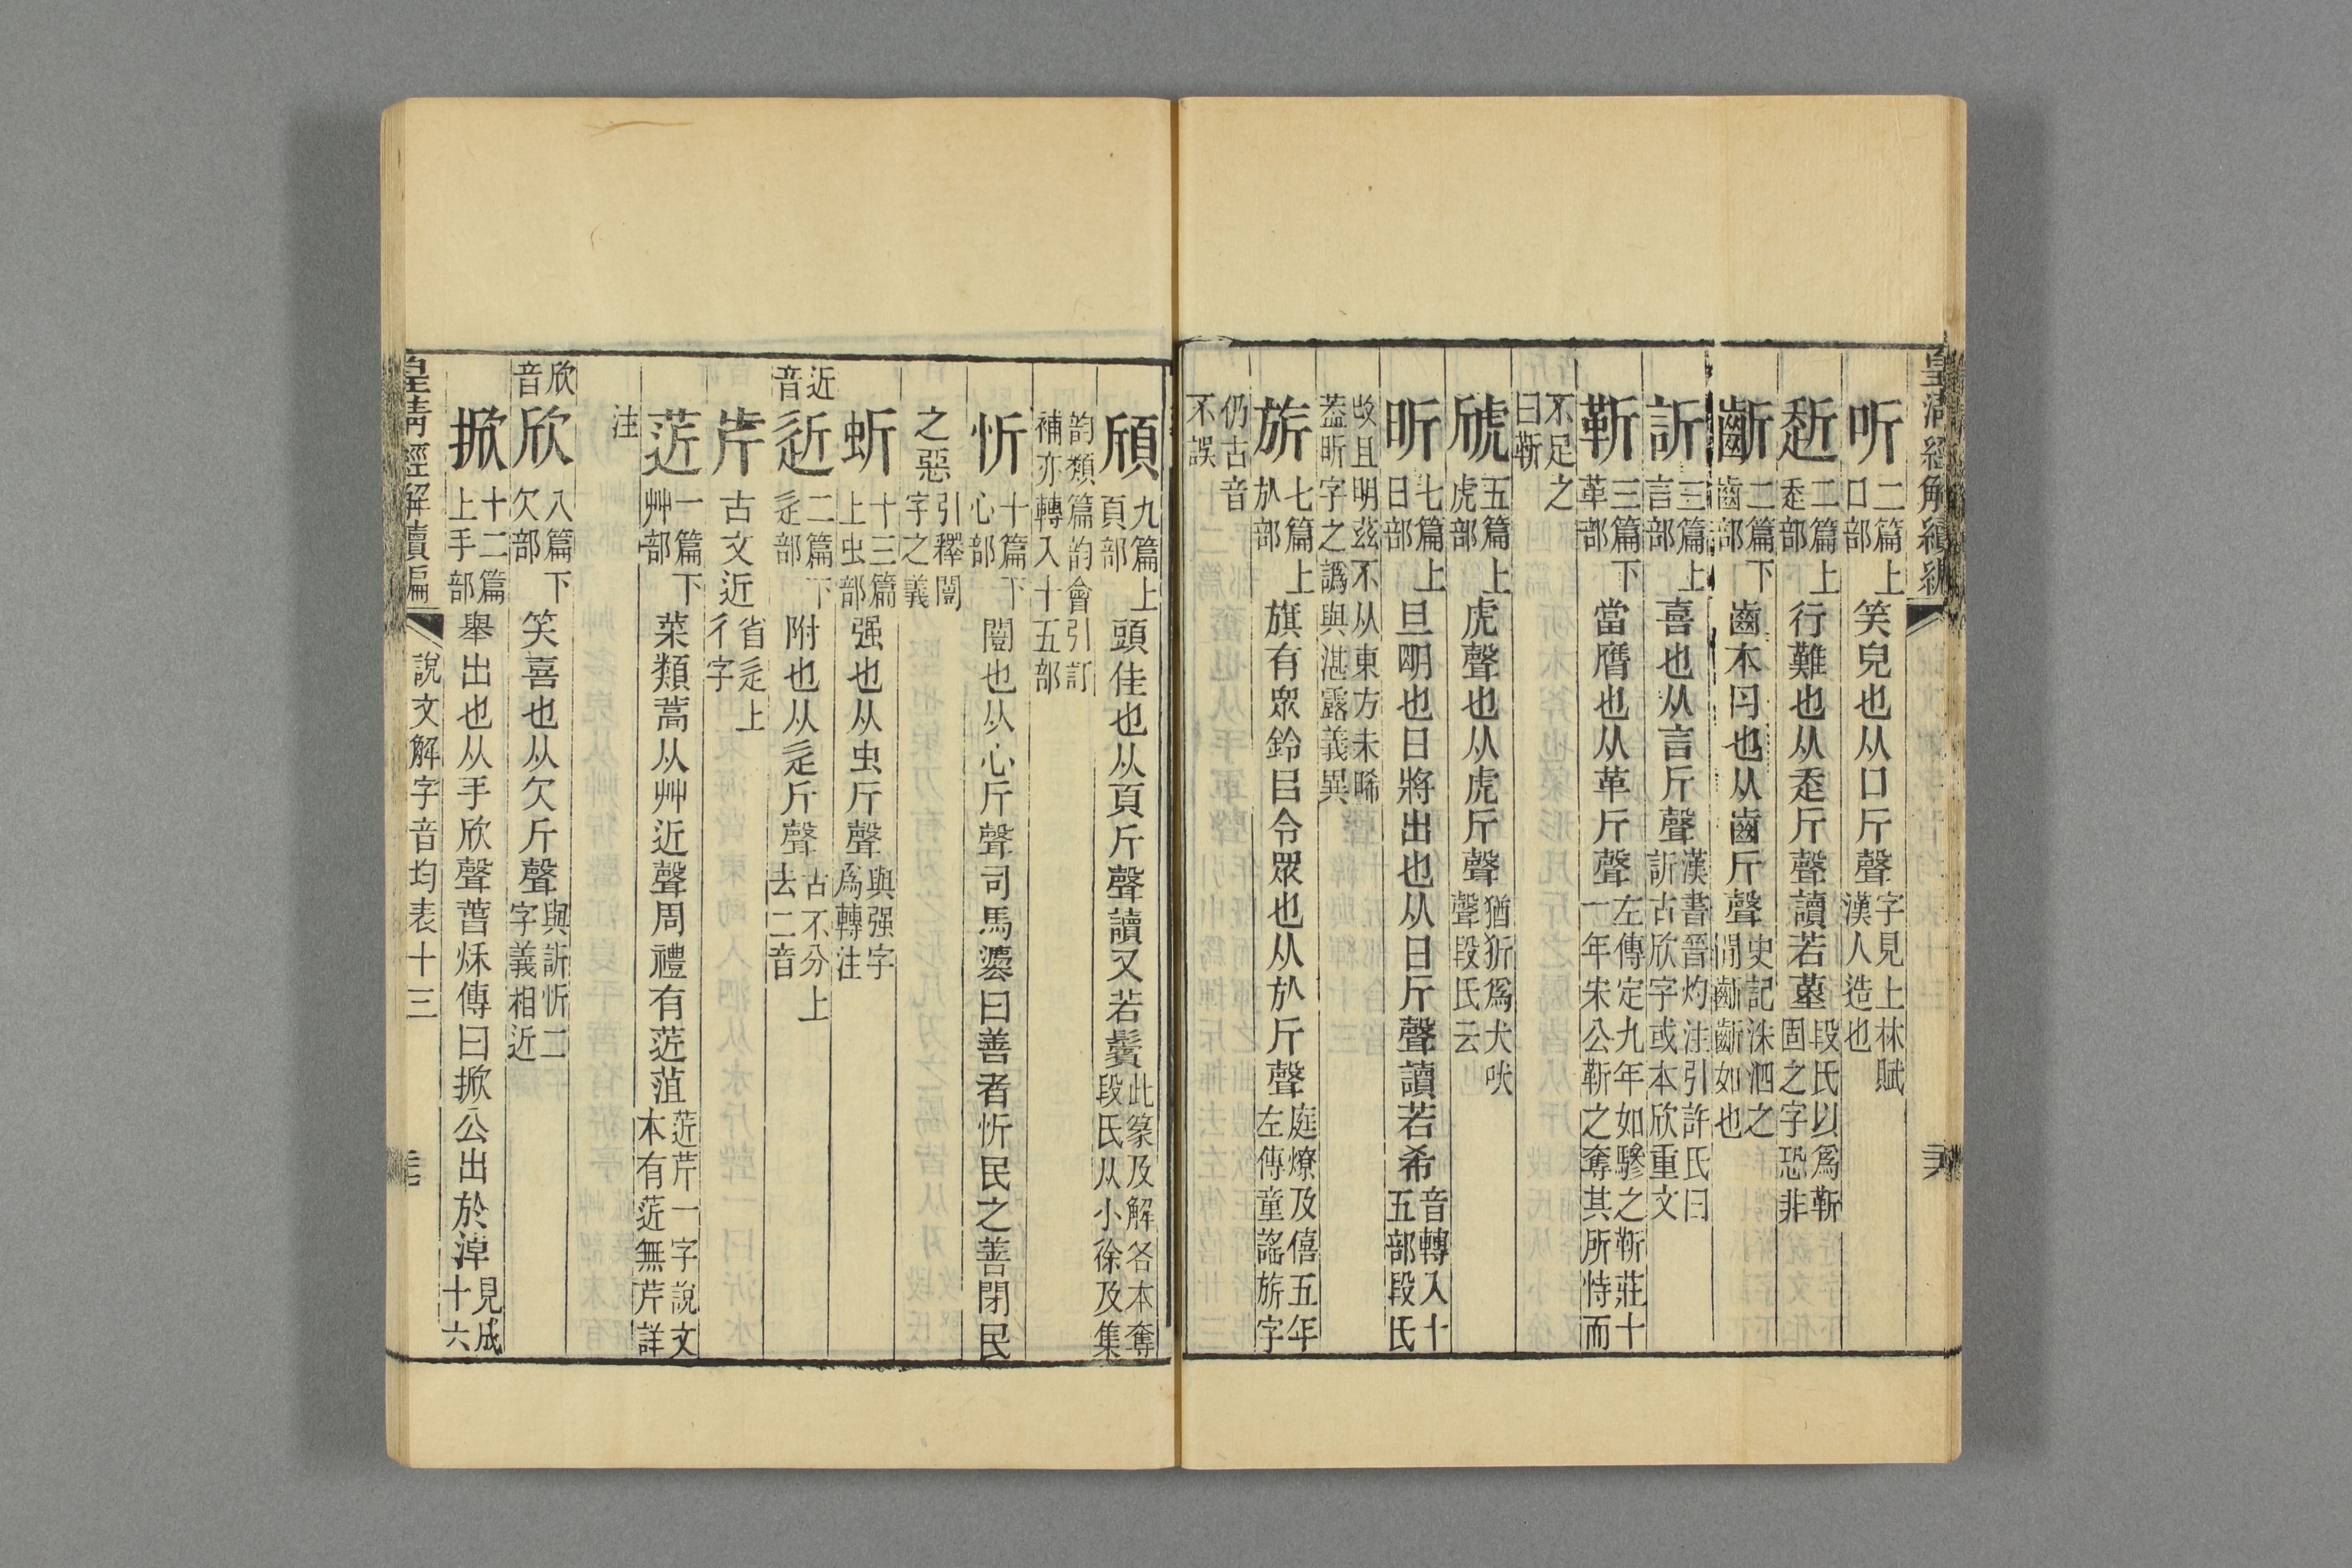 皇清經解續編
听二篇上口部笑皃也从口斤聲字見上林賦漢人造也
赾二篇上赱部行難也从赱斤聲讀若墓段氏以爲靳固之字恐非
齗二篇下齒部齒本肉也从齒斤聲史記洙泗之閒齗齗如也
訢三篇上言部喜也从言斤聲漢書晉灼注引許氏曰訢古欣字或本欣重文
靳三篇下革部當膺也从革斤聲左傳定九年如驂之靳莊十一年宋公靳之奪其所恃而
不足之曰靳
虒五篇上虎部虎聲也从虎斤聲猶狾爲犬吠聲段氏云
昕七篇上日部旦朙也日將出也从日斤聲讀若希音轉入十五部段氏
㫖且明兹不从東方未晞蓋昕字之譌與湛露義異
旂七篇上㫃部旗有眾鈴㠯令眾也从㫃斤聲庭燎及僖五年左傳童謠旂字
仍古音不誤
頎九篇上頁部頭佳也从頁斤聲讀又若鬢此篆及解各本奪段氏从小徐及集
韵類篇韵會引訂補亦轉入十五部
忻十篇下心部闓也从心斤聲司馬灋曰善者忻民之善閉民
之惡引釋闓字之義
蚚十三篇上虫部强也从虫斤聲與强字爲轉注
近音
近二篇下辵部附也从辵斤聲古不分上去二音
岸古文近省辵上彳字
菦一篇下艸部菜類蒿从艸近聲周禮有菦菹菦芹一字說文本有菦無芹詳
注
欣音
欣八篇下欠部笑喜也从欠斤聲與訢忻二字義相近
掀十二篇上手部舉出也从手欣聲萅秌傳曰掀公出於淖見成十六
皇清經解續編 說文解字音均表十三